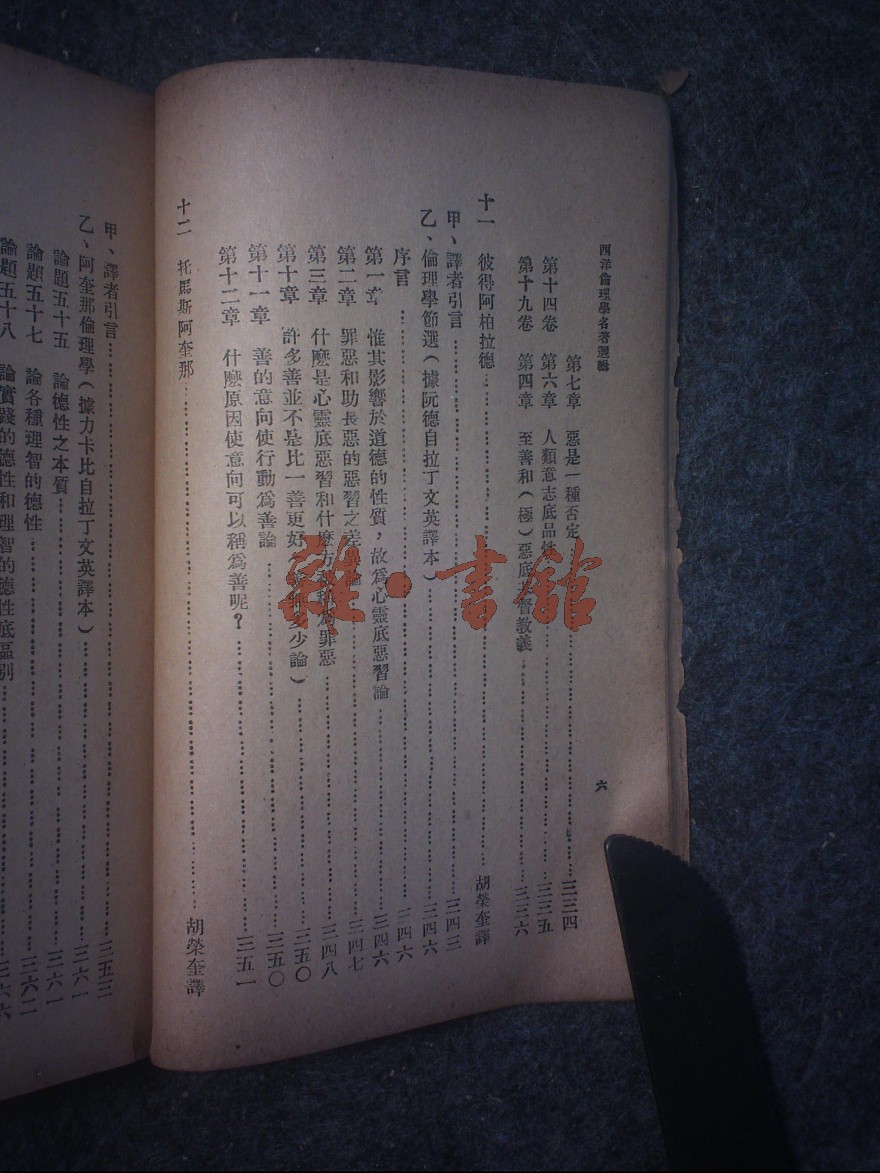 西洋倫理學名著選輯
六
第七章 惡是一種否定……三三四
第十四卷 第六章 人類意志底品性……三三五
第十九卷 第四章 至善和(極)惡底督教義……三三六
十一 彼得阿柏拉德……胡榮奎譯
甲、譯者引言……三四三
乙、倫理學節選(據阮德自拉丁文英譯本)……三四六
序言……三四六
第一章 惟其影響於道德的性質,故爲心靈底惡習論……三四六
第二章 罪惡和助長惡的惡習之差異論……三四七
第三章 什麼是心靈底惡習和什麼方被稱爲罪惡……三四八
第十章 許多善並不是比一善更好多少論)……三五〇
第十一章 善的意向使行動爲善論……三五〇
第十二章 什麼原因使意向可以稱爲善呢?……三五一
十二 托馬斯阿奎那……胡榮奎譯
甲、譯者引言……三五三
乙、阿奎那倫理學(據力卡比自拉丁文英譯本)……三六一
論題五十五 論德性之本質……三六一
論題五十七 論各種理智的德性……三六二
論題五十八 論實踐的德性和理智的德性底區別……三六六
雜·書館